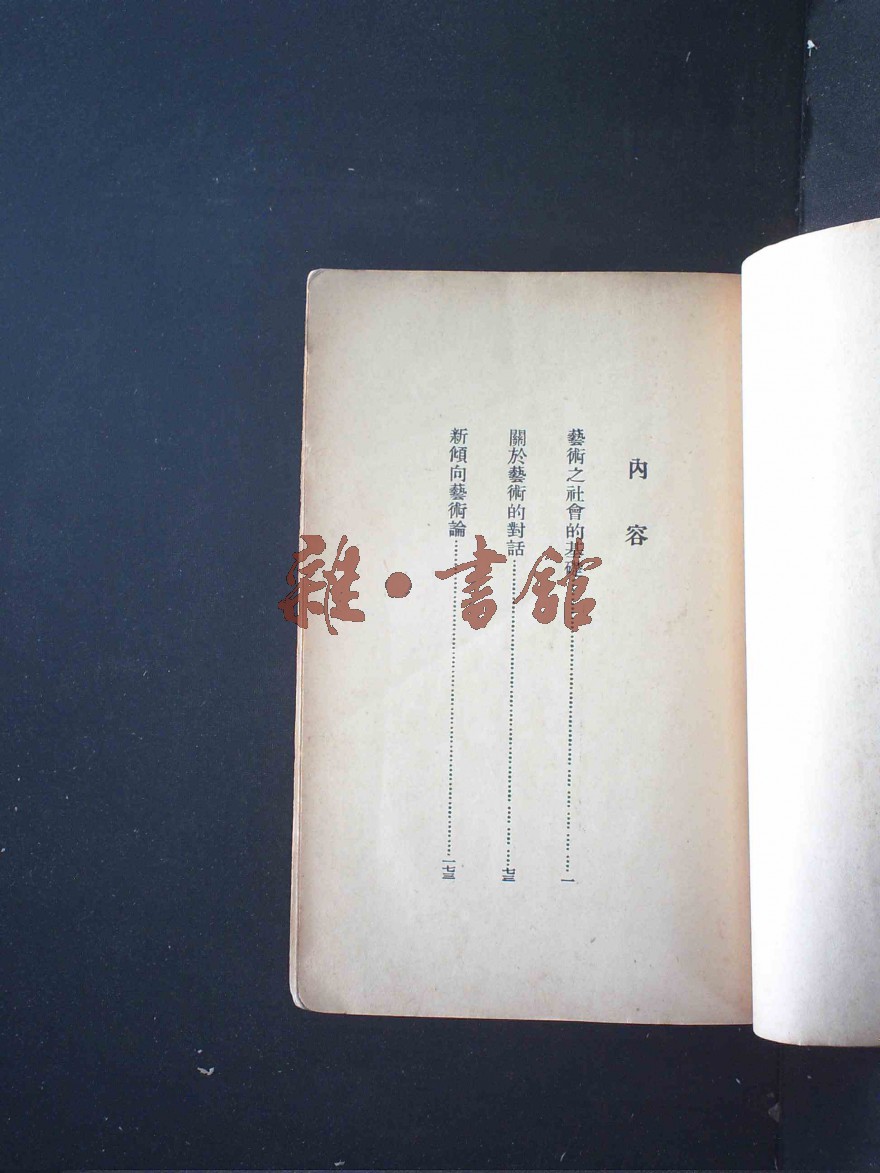 內容
藝術之社會的基礎……一
關於藝術的對話……七三
新傾向藝術論……一七三
雜·書館